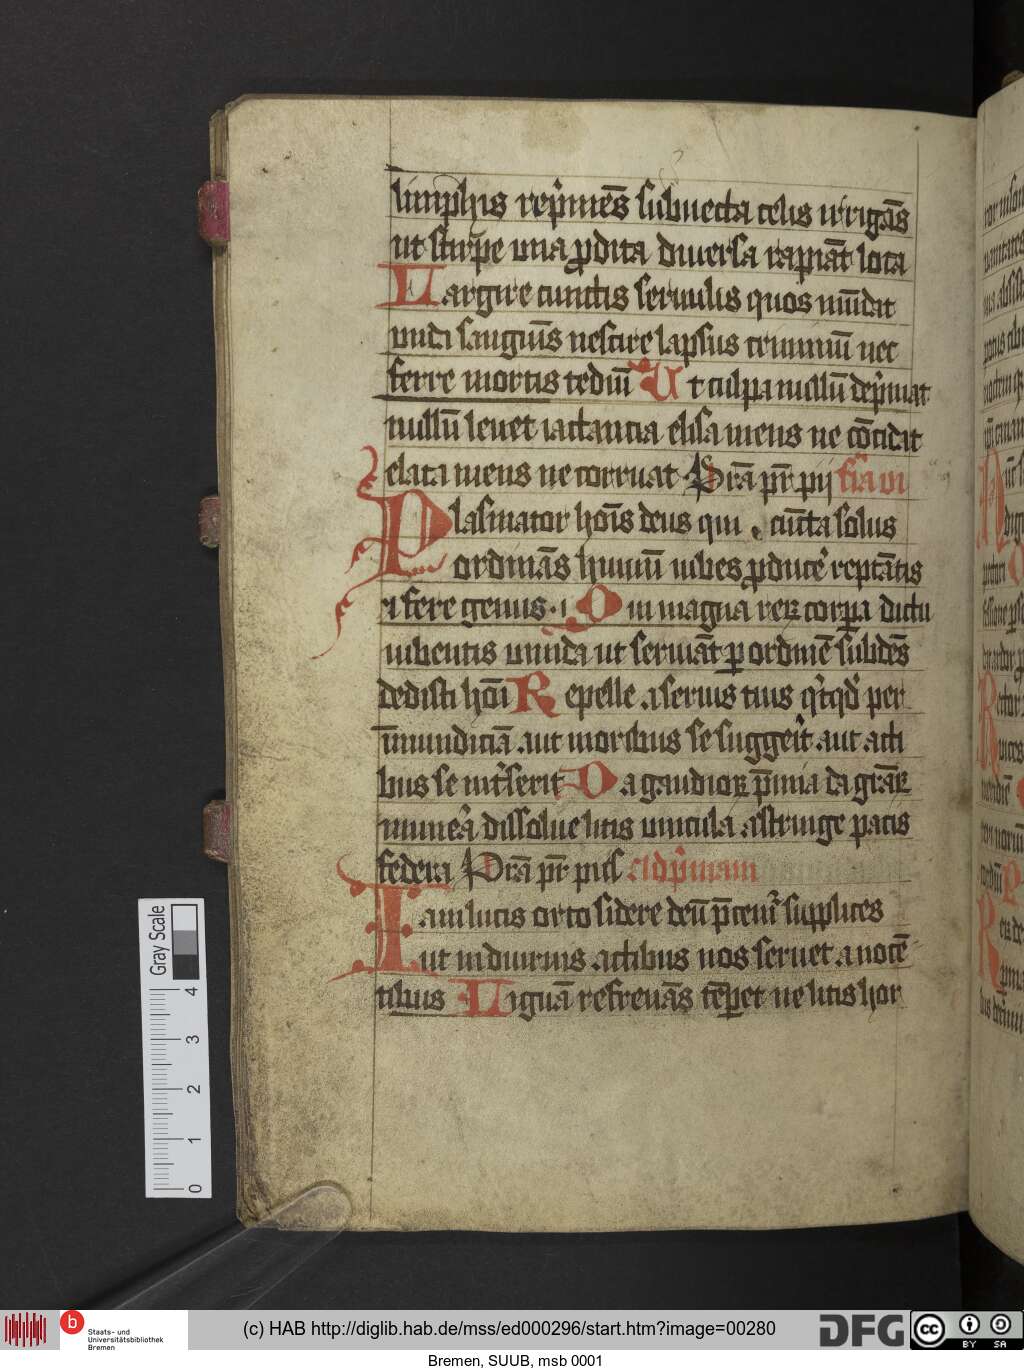 limphis rep̃mēs subuecta celis irrigās
ut stirpe una ꝓdita diuersa rapiāt loca
Largire cunctis seruulis quos mūdat
unda sanguīs nescire lapsus criminū nec
ferre mortis tediū Ut culpa nullū dep̃mat
nullū leuet iactancia elisa mens ne cōcidat
elata mens ne corruat Prā pr̄ pij fr̄a vi
Plasmator hoīs deus qui cūcta solus
ordinās humū iubes ꝓducer̃ reptātis
⁊ fere genus Qui magna reꝝ corꝑa dictu
iubentis uiuida ut seruiāt ꝑ ordinē subdēs
dedisti hoı̄ Repelle a seruis tuis q̇cqd̃ per
īmundiciā aut moribus se suggeit̃ aut acti
bus se int̃serit Da gaudioꝝ p̄mia da gr̄aꝝ
munera dissolue litis uincula astringe pacis
federa Prā pr̄ piis Ad p̃mam
Iam lucis orto sidere deū p̄cemur̃ supplices
ut in diurnis actibus nos seruet a nocē
tibus Linguā refrenās tēpet ne litis hor
Gray Scale
4
3
2
1
0
b
Staats- und
Universitätsbibliothek
Bremen
(c) HAB http://diglib.hab.de/mss/ed000296/start.htm?image=00280
DFG
cc BY SA
Bremen, SUUB, msb 0001